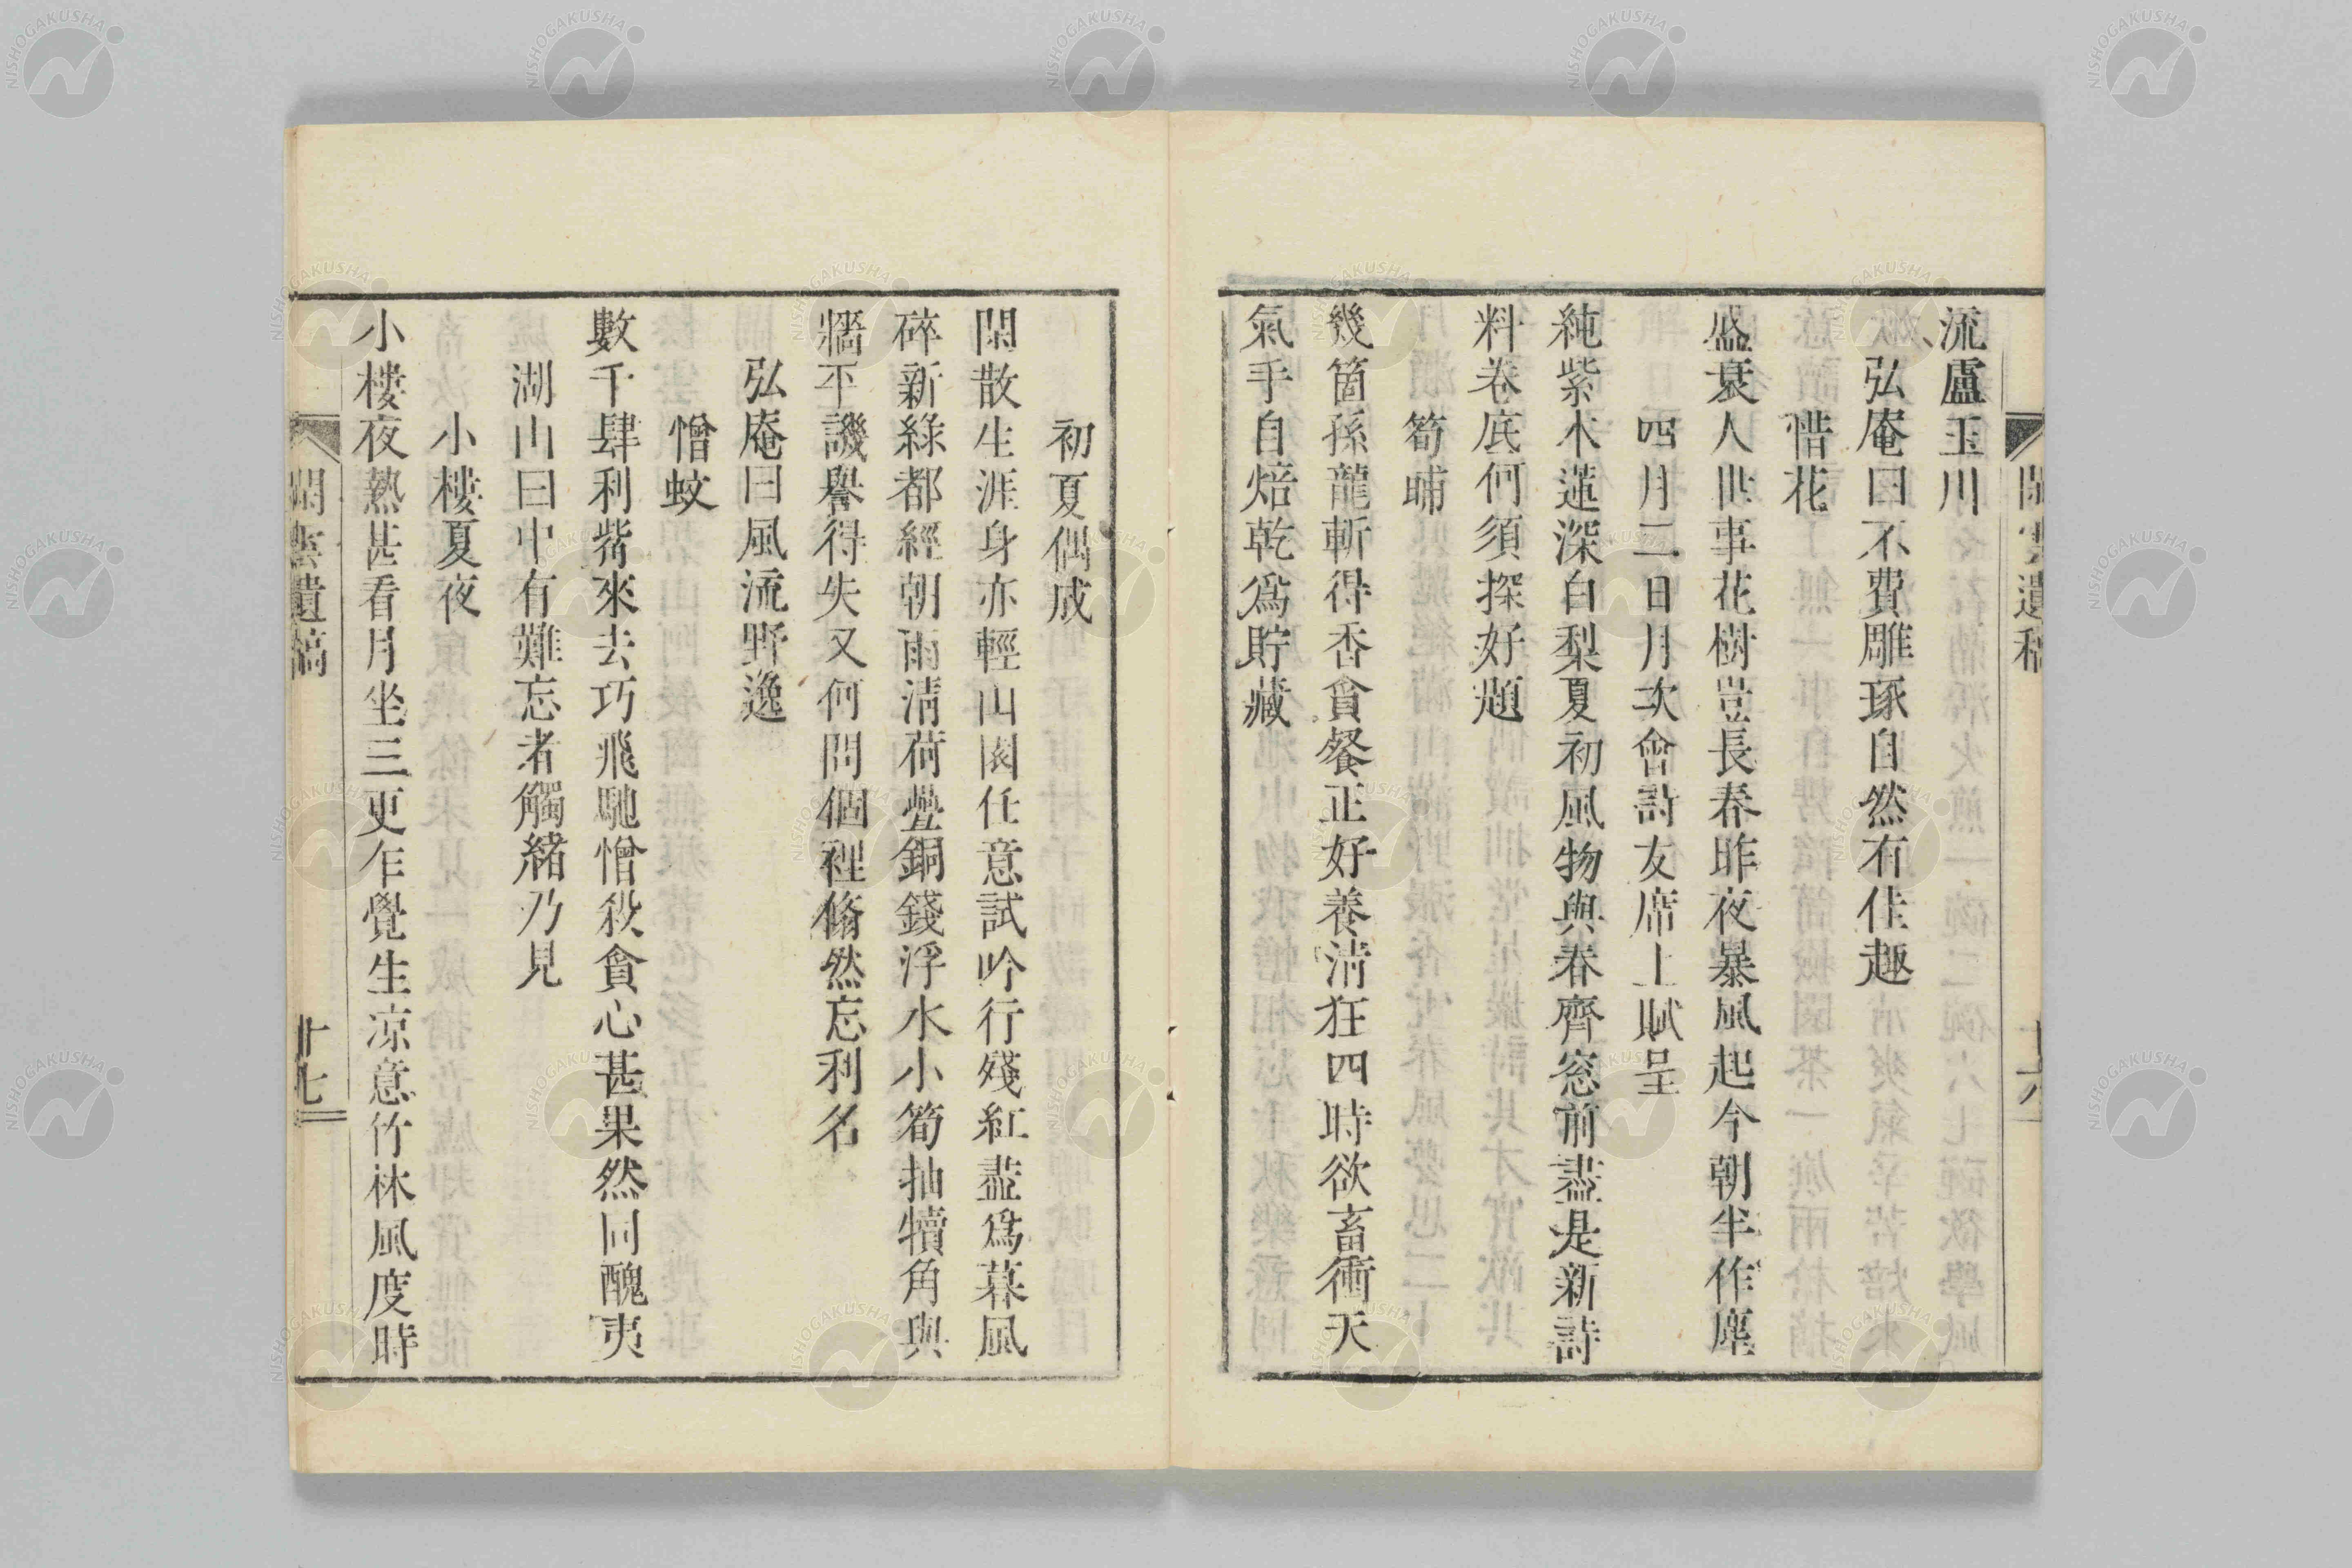 流盧玉川
弘庵曰不費雕琢自然有佳趣
惜花
盛衰人世事花樹豈長春昨夜暴風起今朝半作塵
四月二日月次會詩友席上賦呈
純紫木蓮深白梨夏初風物與春齊窓前盡是新詩
料卷底何須探好題
筍晡
幾箇孫龍斬得香貪餐正好養淸狂四時欲畜術天
氣手自焙乾爲貯藏
閑雲遺稿
十六
初夏偶成
閑散生涯身亦輕山園任意試吟行殘紅盡爲暮風
碎新綠都經朝雨淸荷疊銅錢浮水小筍抽犢角與
牆平譏譽得失又何問個裡翛然忘利名
弘庵曰風流野逸
憎蚊
數千肆利觜來去巧飛馳憎殺貪心甚果然同醜夷
湖山曰中有難忘者觸緒乃見
小樓夏夜
小樓夜熱甚看月坐三更乍覺生凉意竹林風度時
閑雲遺稿
十七
NISHOGAKUSHA